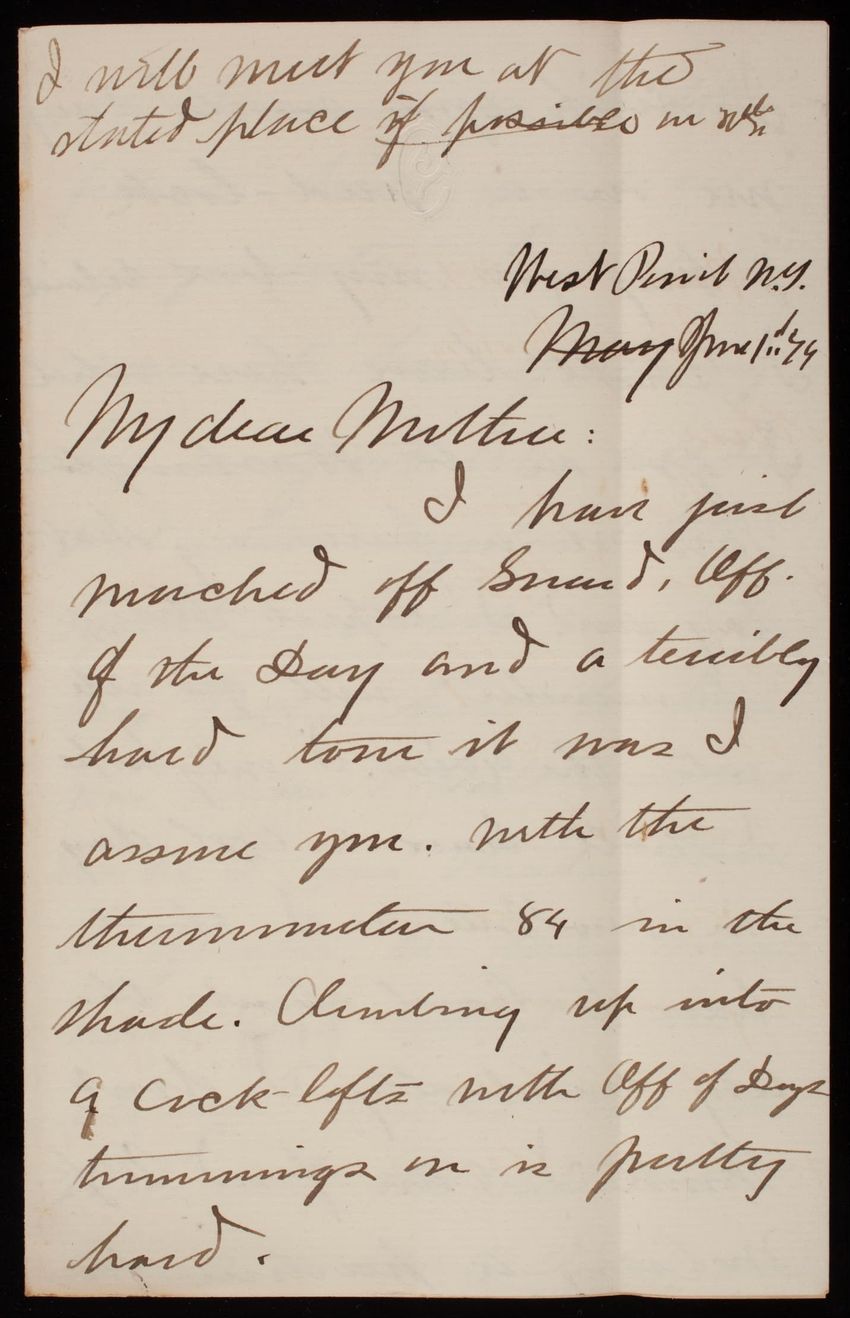 I will meet you at the
stated place if possible on
West Point N.Y.
May June 1st 79
My dear Mother:
I have just
marched off Guard, Off.
of the Day and a terribly
hard tour it was I
assure you. with the
thermometer 84 in the
shade. Climbing up into
9 Cock-lofts with Off of Days
trimmings on is pretty
hard.